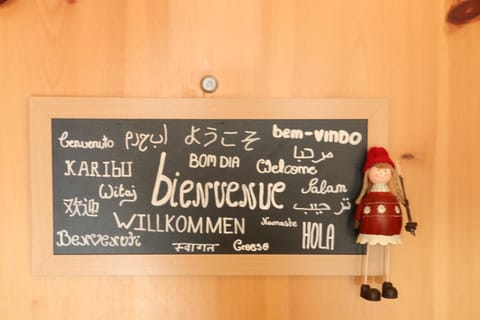 benvenuto ようこそ bem-VINDO
KARIBU BOM DIA Welcome مرحبا
Witaj bienvenue Salam
欢迎 ترحيب
WILLKOMMEN Namaste HOLA
Benvenuti स्वागत